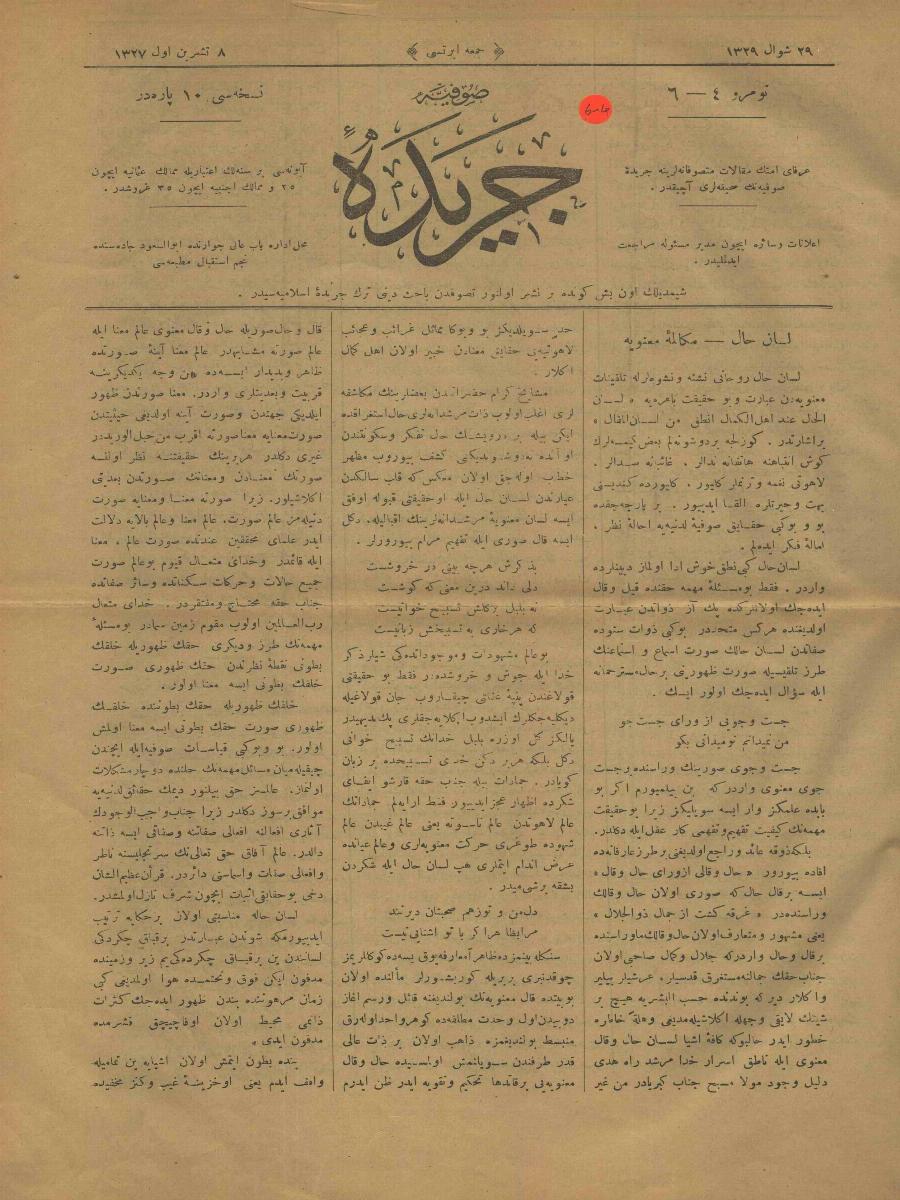 ٢٩ شوال ١٣٢٩
﴿ جمعه ایرتسی ﴾
٨ تشرین اول ١٣٢٧
نومرو ٤ — ٦
صوفیه
جریدهٔ
نسخه‌سی ١٠ پاره‌در
عرفای امتك مقالات متصوفانه‌لرینه جریدهٔ
صوفیه‌نك صحیفه‌لری آچیقدر .
اعلانات وسائره ایچون مدیر مسئوله مراجعت
ایدلملیدر .
آبونه‌سی بر سنه‌لك اعتباریله ممالك عثمانیه ایچون
٢٥ و ممالك اجنبیه ایچون ٣٥ غروشدر .
محل اداره باب عالی جوارنده ابوالسعود جاده‌سنده
نجم استقبال مطبعه‌سی
شیمدیلك اون بش كونده بر نشر اولنور تصوفدن باحث دینی ترك جریدهٔ اسلامیه‌سیدر .
لسان حال — مكالمهٔ معنویه
لسان حال روحانی نشئه و نشوه‌لرله تلقینات
معنویه‌دن عبارت و بو حقیقت باهره‌یه « لسان
الحال عند اهل الكمال انطق من لسان‌القال »
كوش انتباهنه هاتفانه ندالر . غائبانه سدالر .
لاهوتی نغمه و ترنملر كلیور . كلیورده كندیسنی
بهت و حیرتلره القا ایدییور . بر پارچه‌جقده
بو و بوكبی حقایق صوفیهٔ لدنیه‌یه احالهٔ نظر ،
امالهٔ فكر ایده‌لم .
لسان حال كبی نطق خوش ادا اولماز دینیلرده
واردر . فقط بو مسئلهٔ مهمه حقنده قیل و قال
ایده‌جك اولانلركده پك آز ذواتدن عبارت
اولدیغنده هركس متحددر بوكبی ذوات ستوده
صفاتدن لسان حالك صورت اسماع و استماعنك
طرز تلقیسیله صورت ظهورینی برحال مسترحمانه
ایله سؤال ایده‌جك اولور ایسك .
جست و جویی از ورای جست جو
من نمیدانم تو میدانی بكو
جست وجوی صوریبنك وراسنده وجست
جوی معنوی واردركه بن بیلمیورم اكر بو
بابده علمكز وار ایسه سویلیكز زیرا بو حقیقت
مهمه‌نك كیفیت تفهیم و تفهمی كار عقل ایله دكلدر.
بلكه ذوقه عائد و راجع اولدیغنی برطرز عارفانه‌ده
افاده بیورور « حال وقالی ازورای حال وقال »
ایسه برقال حال كه صوری اولان حال وقالك
وراسنده‌در « غرقه كشت از جمال ذوالجلال »
یعنی مشهور و متعارف اولان حال وقالك ماوراسنده
برقال وحال واردركه جلال وكمال صاحبی اولان
جناب حقك جمالنه مستغرق قدسیلر ، عرشیلر بیلیر
و اكلار دیر كه بوندنده حسب البشریه هیچ بر
خطور ایدر حالبوكه كافهٔ اشیا لسان حال وقال
معنوی ایله ناطق اسرار خدا مرشد راه هدی
دلیل وجود مولا مسبح جناب كبریادر من غیر
حد سویلدیكز بو و بوكا مماثل غرائب و عجائب
لاهوتیه‌یی حقایق معنادن خبیر اولان اهل كمال
اكلار .
مشایخ كرام حضراتندن بعضلرینك مكاشفه
لری اغلب اولوب ذات مرشدانه‌لری حال استغراقده
ایكن بیله بر درویشك حال تفكر وسكوتندن
خطاب اوله‌جق اولان معكس كه قلب سالكدن
عبارتدن لسان حال ایله اوحقیقتی قبوله اوفق
ایسه لسان معنویهٔ مرشدانه‌لرینك اقبالیله . دكل
ایسه قال صوری ایله تفهیم مرام بیورورلر .
بذكرش هرچه بینی در خروشست
دلی داند درین معنی كه كوشست
نه بلبل بركلش تسبیح خوانیست
كه هرخاری به تسبیحش زبانیست
بو عالم مشهودات و موجوداتده كی شیلر ذكر
خدا ایله جوش و خروشده‌در فقط بو حقیقتی
قولاغندن پنبهٔ غفلتی چیقاروب جان قولاغیله
یالكز كل اوزره بلبل خدانك تسبیح خوانی
دكل بلكه هر بر دكن خدی تسبیحده بر زبان
كویادر . جمادات بیله جناب حقه قارشو ایفای
شكرده اظهار عجز ایدییور فقط ارایه‌لم جماداتك
عالم لاهوتدن عالم ناسوته یعنی عالم غیبدن عالم
شهوده طوغری حركت معنویه‌لری و عالم عیانده
عرض اندام ایتملری هپ لسان حال ایله شكردن
بشقه برشی میدر .
دل‌من و توزهم صحبتان دیرینند
مرابظاهر اكر با تو اشنایی نیست
سنكله بینمزده ظاهراً معارفه‌یوق ایسه‌ده كوكللریمز
چوقدنبری بربریله كوریشورلر مألنده اولان
بوبیتده قال معنویه‌نك بولندیغنه قائل و رسم اغاز
دویبدن‌اول وحدت مطلقه‌ده كوهر واحد اوله‌رق
منبسط بولندیغمزه ذاهب اولان بر ذات عالی
قدر طرفندن سویلنمش اولمسیده حال وقال
معنویه‌یی برقاندها تحكیم و تقویه ایدر ظن ایدرم
قال وحال صوریله حال و قال معنوی عالم معنا ایله
عالم صورته مشابهدر عالم معنا آیینهٔ صورتده
ظاهر و بدیدار ایسه‌ده من وجه یكدیكرینه
قربیت و بعدیتلری واردر. معنا صورتدن ظهور
ایلدیكی جهتدن وصورت آینه اولدیغی حیثیتدن
صورت معنایه معنا صورته اقرب من حبل الوریددر
غیری دكلدر هربرینك حقیقتنه نظر اولنسه
صورتك معنادن و معنانك صورتدن بعدیتی
اكلاشیلور. زیرا صورته معنا و معنایه صورت
دنیله‌مز عالم صورت. عالم معنا و عالم بالایه دلالت
ایدر علمای محققین عندنده صورت عالم ، معنا
ایله قائمدر وخدای متعال قیوم بوعالم صورت
جمیع حالات و حركات سكناتنده وسائر صفاتنده
جناب حقه محتاج و مفتقردر . خدای متعال
رب العالمین اولوب مقوم زمین سمادر بومسئلهٔ
مهمه‌نك طرز و دیكری حقك ظهوریله خلقك
بطونی نقطهٔ نظرندن حقك ظهوری صورت
خلقك بطونی ایسه معنا اولور.
خلقك ظهوریله حقك بطوننده خلقك
ظهوری صورت حقك بطونی ایسه معنا اولمش
اولور. بو و بوكبی قیاسات صوفیه‌ایله ایچندن
چیقیله‌میان مسائل مهمه‌نك حلنده دوچار مشكلات
اولنماز. عالمسز حق بیلنور دیمك حقائق‌لدنیه‌یه
موافق برسوز دكلدر زیرا جناب واجب‌الوجودك
آثاری افعالنه افعالی صفاتنه وصفاتی ایسه ذاتنه
دالدر. عالم آفاق حق تعالی‌نك سرتجلیسنه ناظر
وافعالی صفات واسماسنی دائردر. قرآن عظیم‌الشان
دخی بوحقایقی اثبات ایچون شرف نازل اولمشدر.
لسان حاله مناسبتی اولان برحكایه ترتیب
ایدییورمكه شوندن عبارتدر برقباق چكردكی
لسانندن بن برقباق چكرده‌كی‌یم زیر زمینده
مدفون ایكن فوق و تحتمده هوا اولدیغی كبی
زمان مرهوننده بندن ظهور ایده‌جك كثرات
ذاتمی محیط اولان اوفاجیق قشرمده
مدفون ایدی.
بنده بطون ایتمش اولان اشیایه بن تمامیله
واقف ایدم یعنی اوخزینهٔ غیب و كنز مخفیده